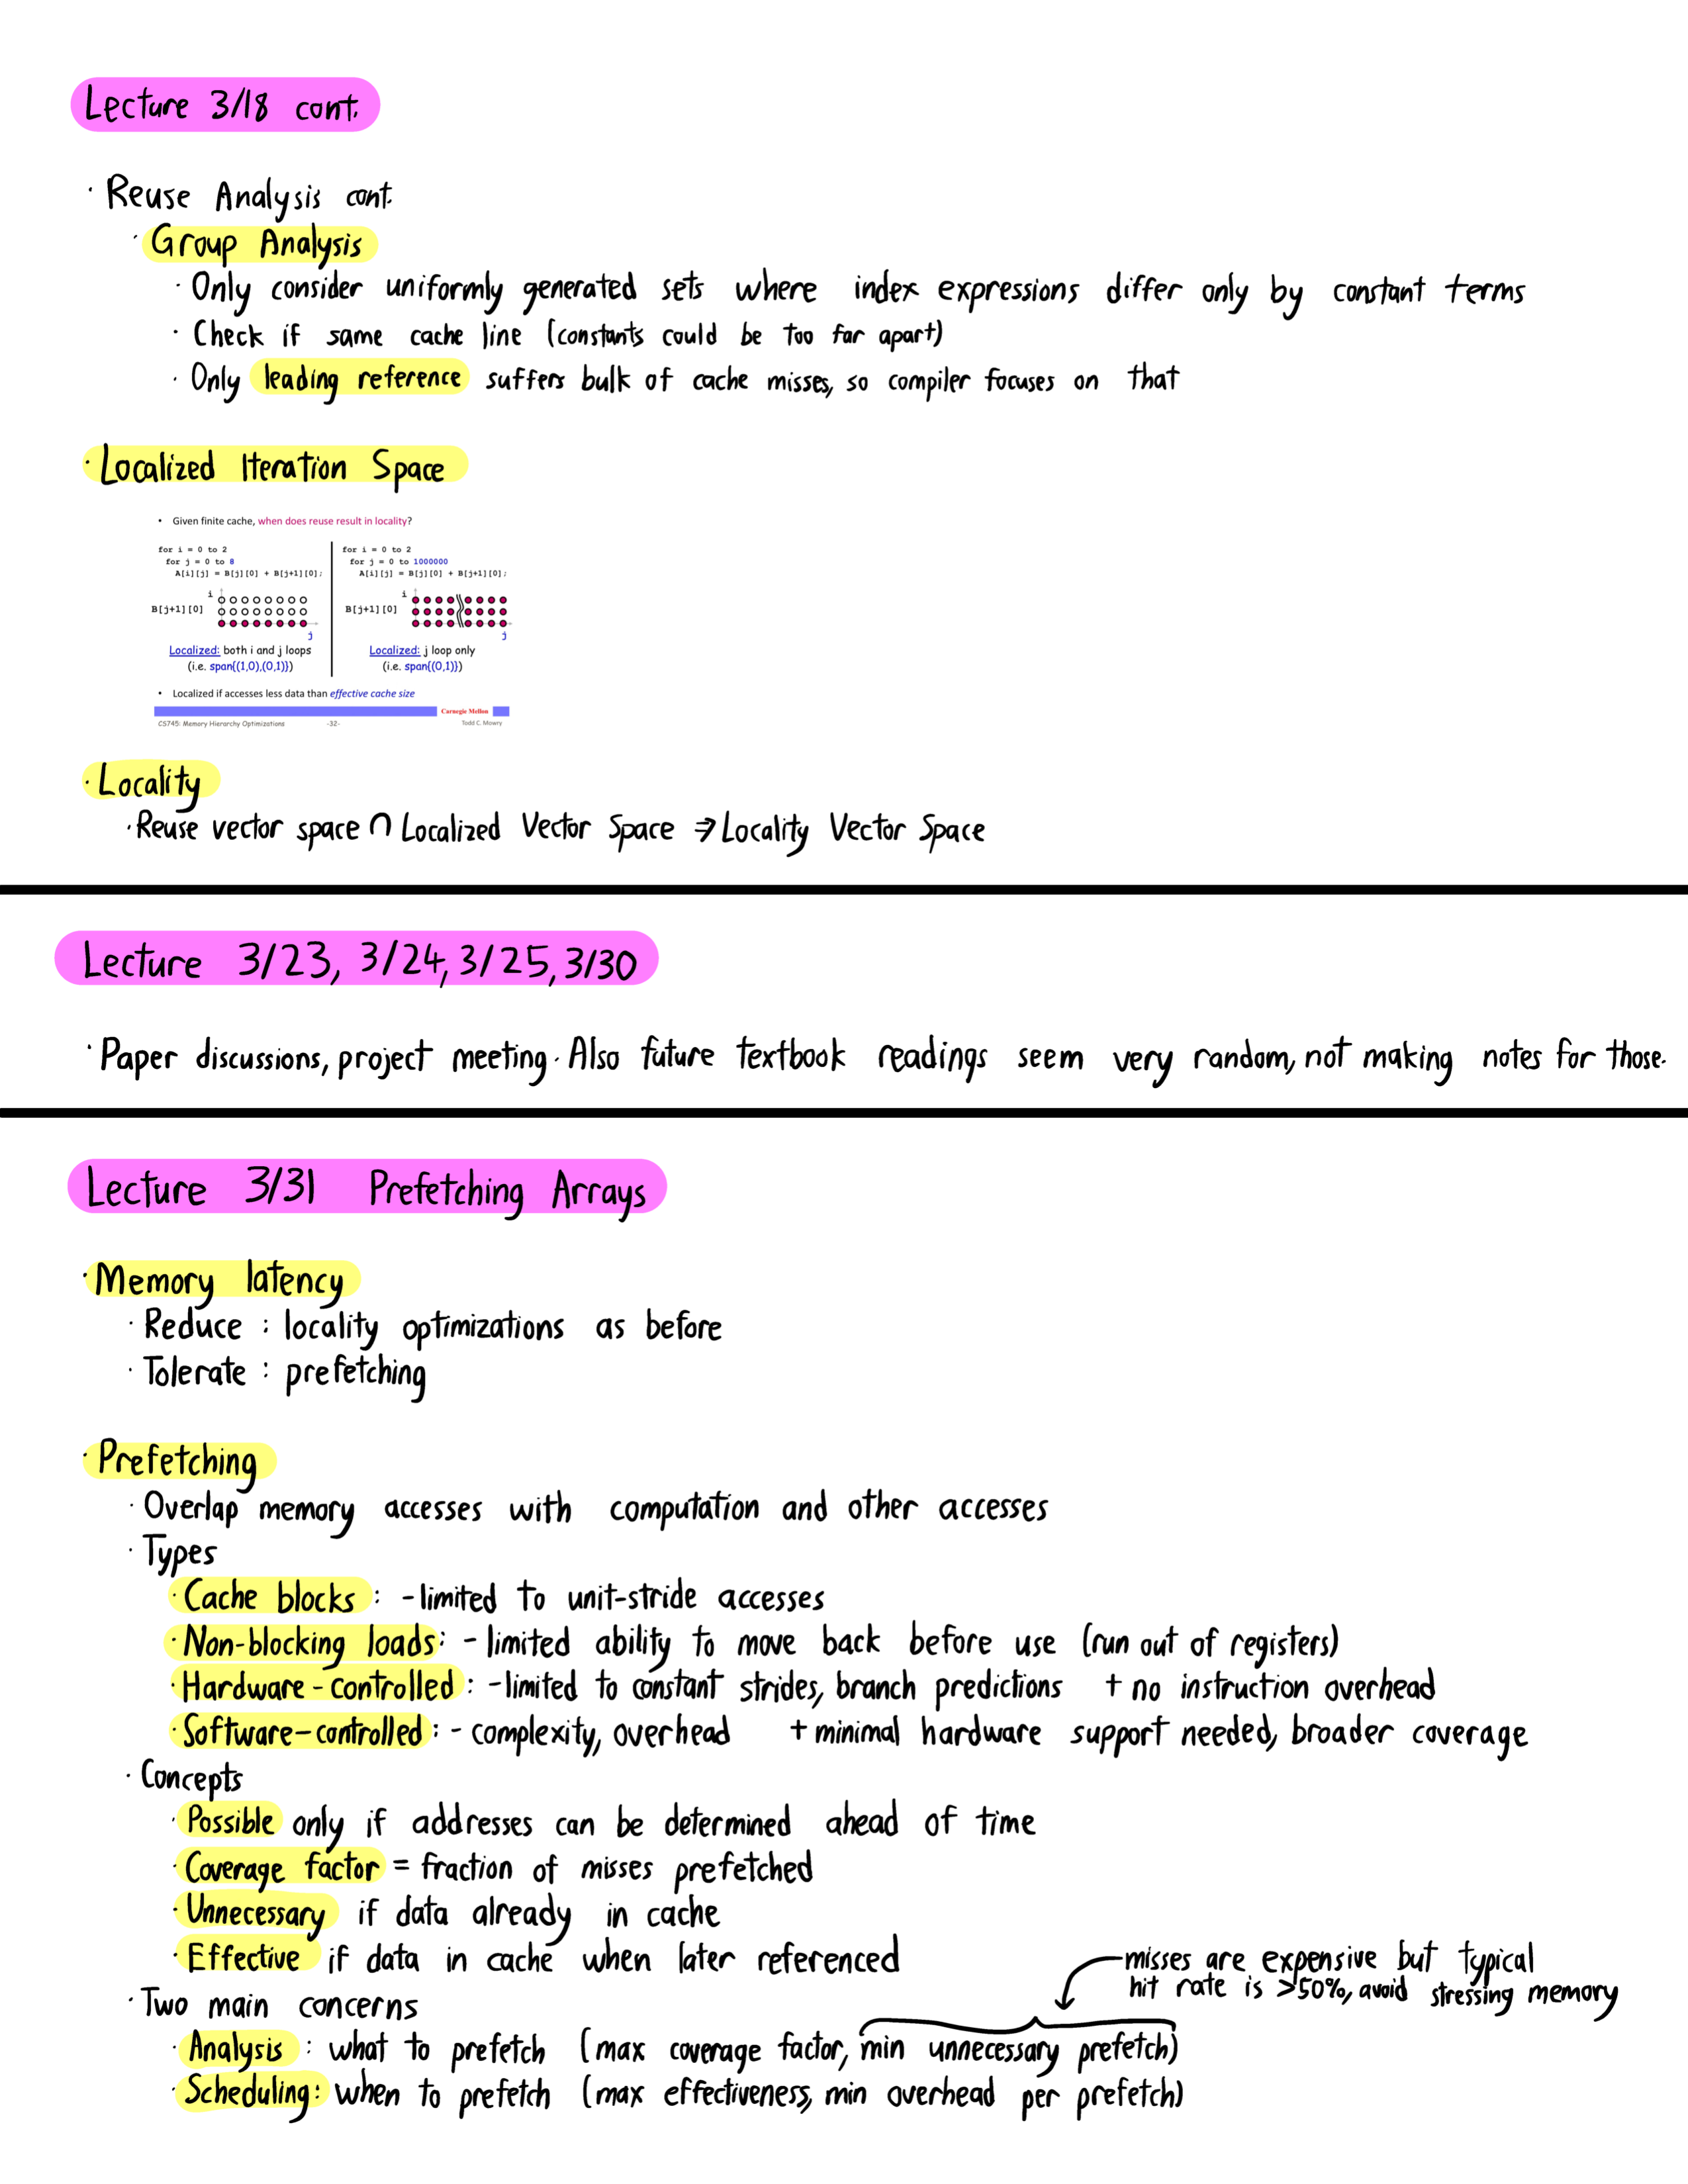 Lecture 3/18 cont.
· Reuse Analysis cont.
· Group Analysis
· Only consider uniformly generated sets where index expressions differ only by constant terms
· Check if same cache line (constants could be too far apart)
· Only leading reference suffers bulk of cache misses, so compiler focuses on that
· Localized Iteration Space
• Given finite cache, when does reuse result in locality?
for i = 0 to 2
for j = 0 to 8
A[i][j] = B[j][0] + B[j+1][0];
i
B[j+1][0]
j
Localized: both i and j loops
(i.e. span{(1,0),(0,1)})
for i = 0 to 2
for j = 0 to 1000000
A[i][j] = B[j][0] + B[j+1][0];
i
B[j+1][0]
j
Localized: j loop only
(i.e. span{(0,1)})
• Localized if accesses less data than effective cache size
Carnegie Mellon
CS745: Memory Hierarchy Optimizations -32- Todd C. Mowry
· Locality
· Reuse vector space ∩ Localized Vector Space ⇒ Locality Vector Space
Lecture 3/23, 3/24, 3/25, 3/30
· Paper discussions, project meeting. Also future textbook readings seem very random, not making notes for those.
Lecture 3/31 Prefetching Arrays
· Memory latency
· Reduce : locality optimizations as before
· Tolerate : prefetching
· Prefetching
· Overlap memory accesses with computation and other accesses
· Types
· Cache blocks : - limited to unit-stride accesses
· Non-blocking loads: - limited ability to move back before use (run out of registers)
· Hardware-controlled : - limited to constant strides, branch predictions + no instruction overhead
· Software-controlled : - complexity, overhead + minimal hardware support needed, broader coverage
· Concepts
· Possible only if addresses can be determined ahead of time
· Coverage factor = fraction of misses prefetched
· Unnecessary if data already in cache
· Effective if data in cache when later referenced
misses are expensive but typical
hit rate is >50%, avoid stressing memory
· Two main concerns
· Analysis : what to prefetch (max coverage factor, min unnecessary prefetch)
· Scheduling: when to prefetch (max effectiveness, min overhead per prefetch)